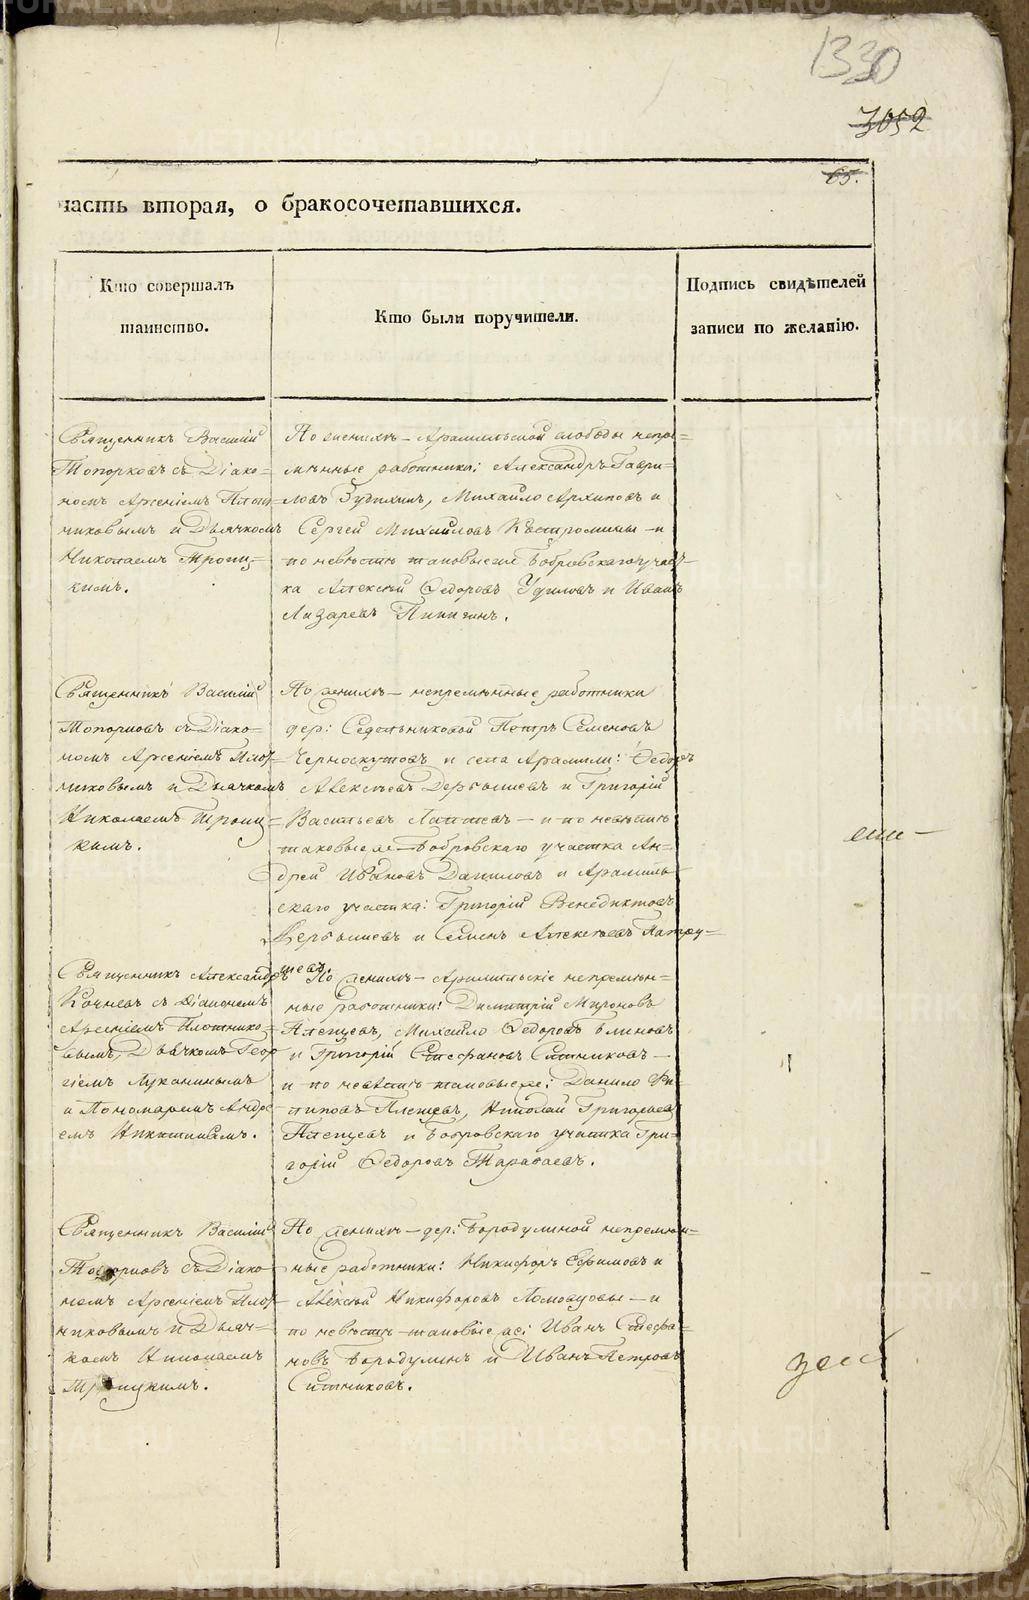 1330
3052
65.
часть вторая, о бракосочетавшихся.
Кто совершалъ
таинство.
Кто были поручители.
Подпись свидѣтелей
записи по желанію.
Священникъ Василій
Топорковъ съ Діако=
номъ Арсеніемъ Плот=
никовымъ и Дьячкомъ
Николаемъ Троиц=
кимъ.
По женихѣ – Арамильской слободы непре=
мѣнные работники: Александръ Гаври=
ловъ, Михайло Архиповъ и
Сергей Михайловъ Костромины – и
по невѣстѣ таковые же Бобровскаго участ=
ка Алексѣй Федоровъ и Иванъ
Лазаревъ.
Священникъ Василій
Топорковъ съ Діако=
номъ Арсеніемъ Плот=
никовымъ и Дьячкомъ
Николаемъ Троиц=
кимъ.
По женихѣ – непремѣнные работники
дер: Седельниковой Петръ Семеновъ
Черноскутовъ и села Арамили: Федоръ
Алексѣевъ Дерябиевъ и Григорій
Васильевъ Лаптевъ – и по невѣстѣ
таковые же – Бобровскаго участка Ан=
дрей Ивановъ Даниловъ и Арамиль=
скаго участка: Григорій Венедиктовъ
и Семенъ Алексѣевъ Патру=
шевъ.
Священникъ Александръ
Кочневъ съ Діакономъ
Арсеніемъ Плотнико=
вымъ, Дьячкомъ Геор
гіемъ Луканинымъ
и Пономаремъ Андре
емъ Никитинымъ.
По женихѣ – Арамильскіе непремѣн=
ные работники: Димитрій Мироновъ
Плещевъ, Михайло Федоровъ Блиновъ
и Григорій Стефановъ Ситниковъ –
и по невѣстѣ таковые же: Данило Фи=
липовъ Плещевъ, Николай Григорьевъ
Плещевъ и Бобровскаго участка Гри=
горій Федоровъ Тарабаевъ.
Священникъ Василій
Топорковъ съ Діако=
номъ Арсеніемъ Плот=
никовымъ и Дьяч=
комъ Николаемъ
Троицкимъ.
По женихѣ – дер: Бородулиной непремѣн=
ные работники: Никифоръ Ефимовъ и
Алексѣй Никифоровъ Ломовцовы – и
по невѣстѣ – таковые же: Иванъ Стефа=
новъ Бородулинъ и Иванъ Петровъ
Ситниковъ.
METRIKI.GASO-URAL.RU